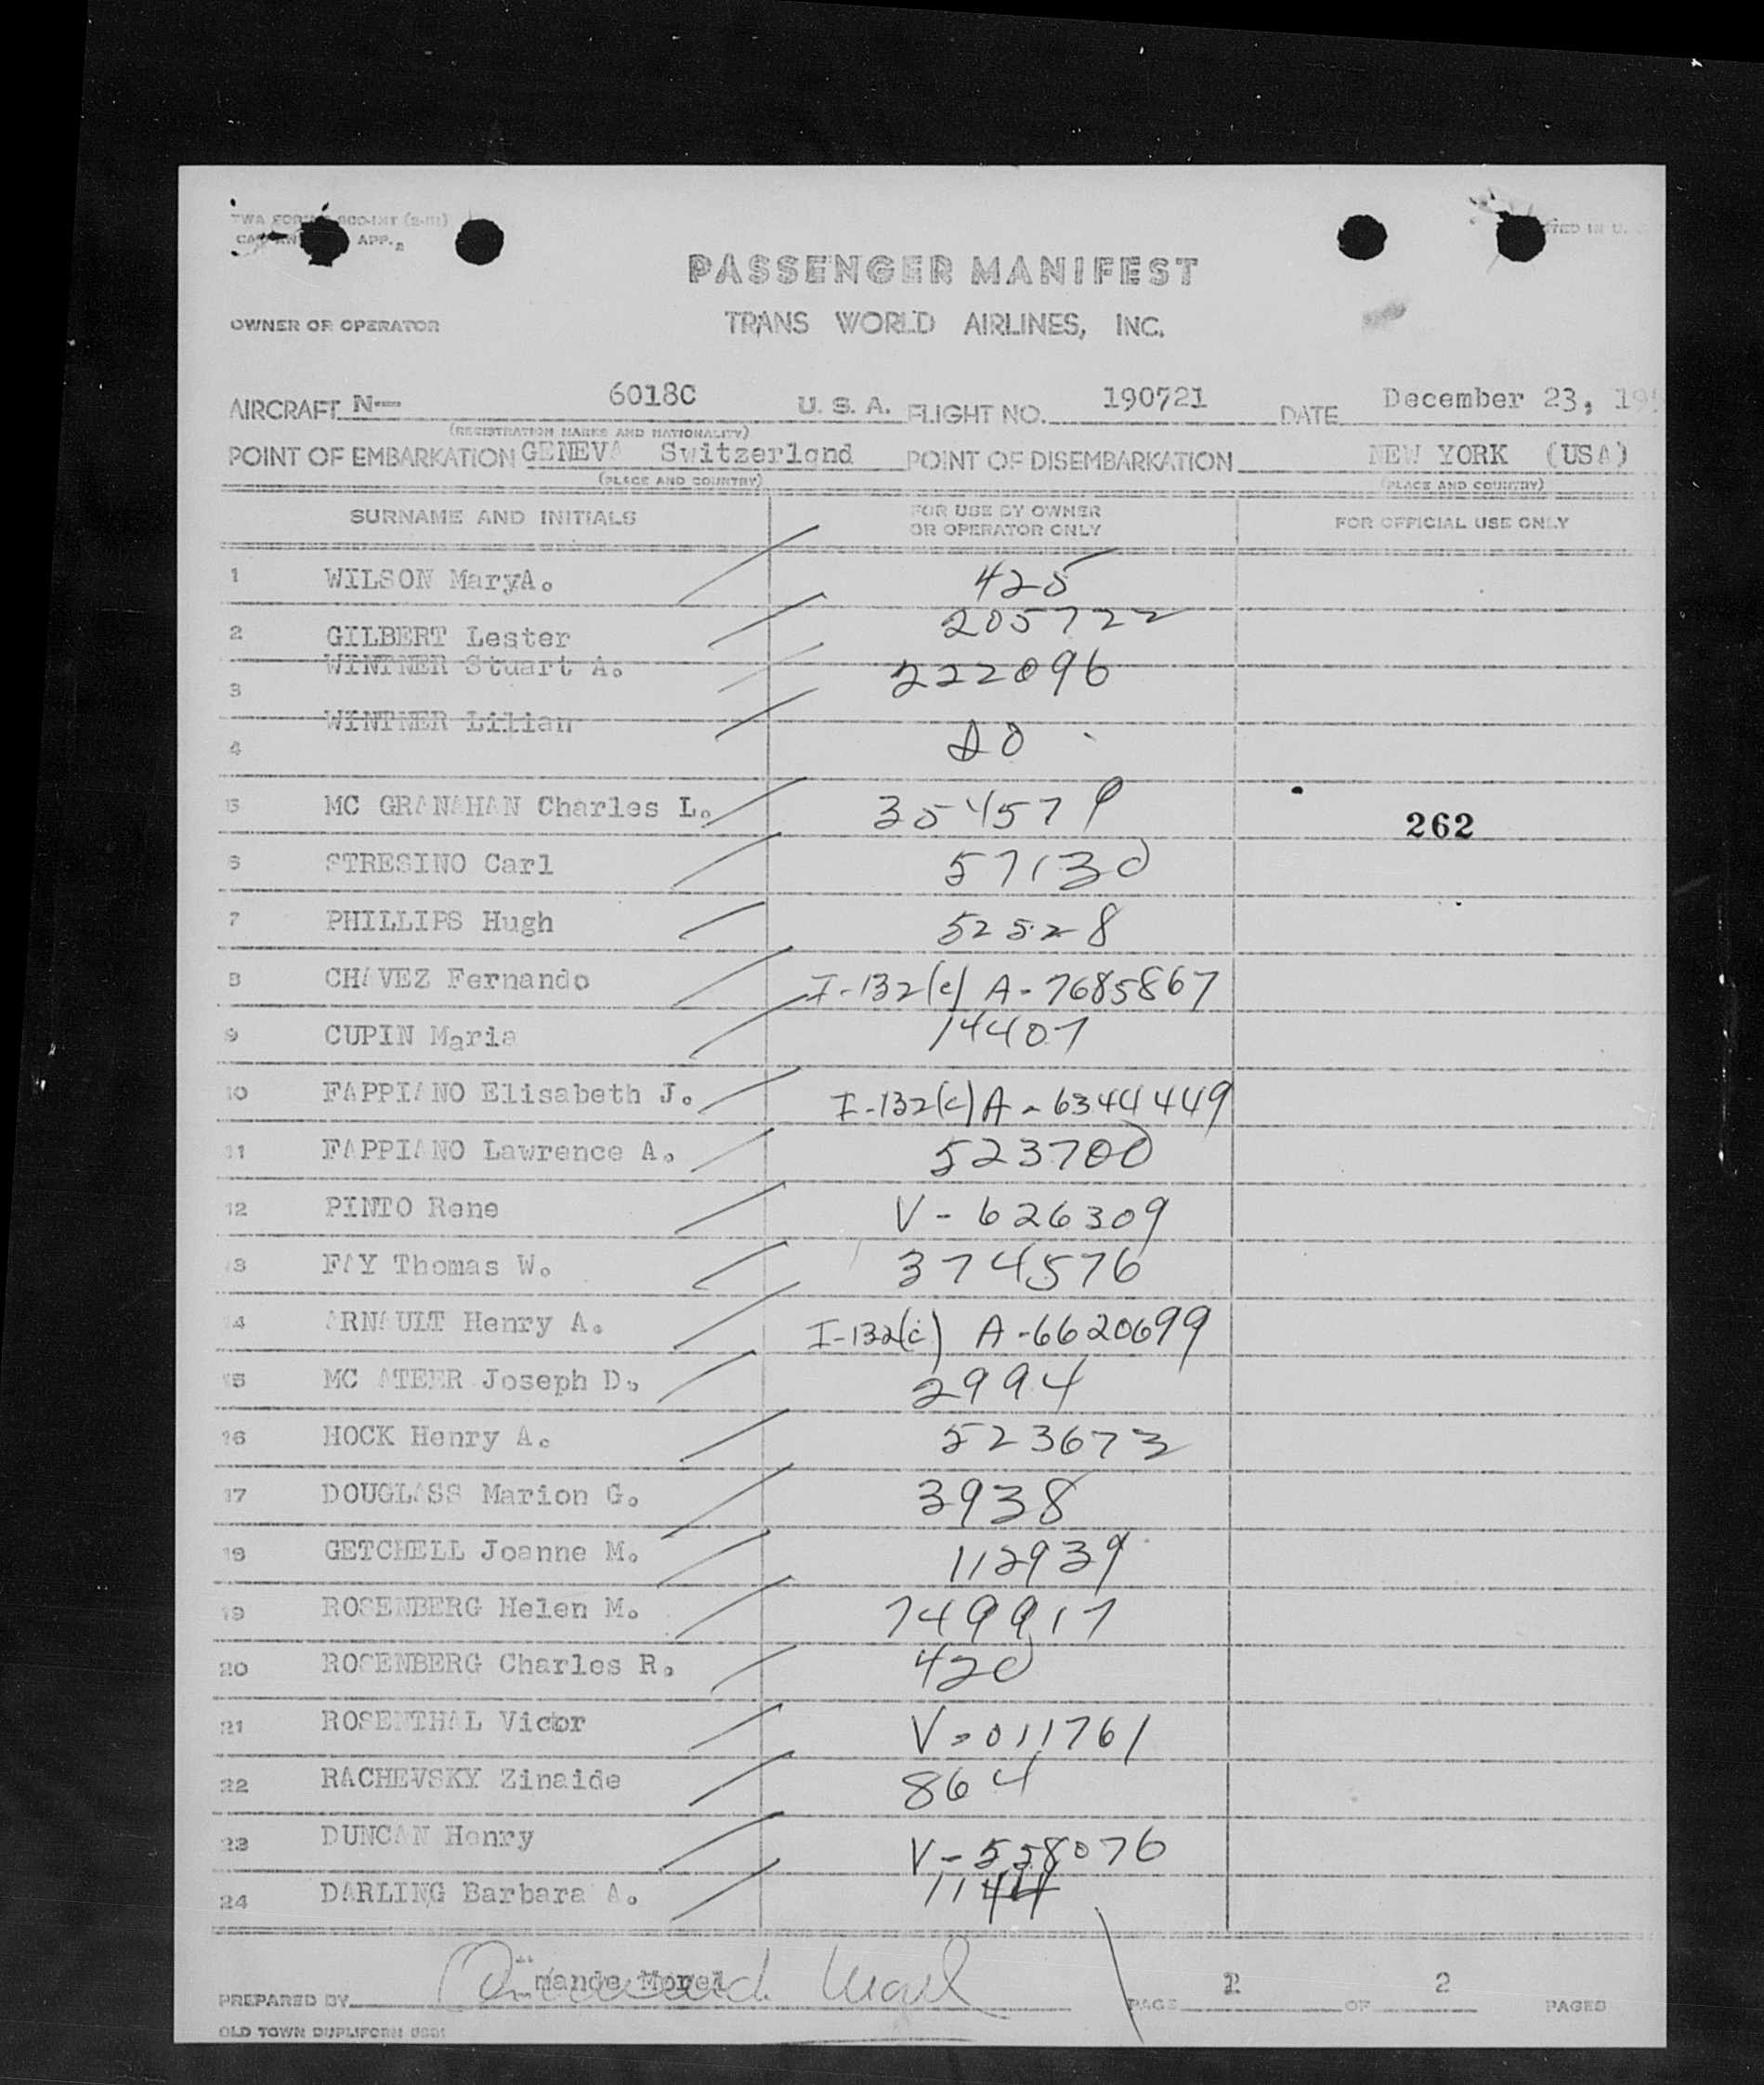 PASSENGER MANIFEST
OWNER OR OPERATOR TRANS WORLD AIRLINES, INC.
AIRCRAFT N— 6018C U. S. A. FLIGHT NO. 190721 DATE December 23,
(REGISTRATION MARKS AND NATIONALITY)
POINT OF EMBARKATION GENEVA Switzerland POINT OF DISEMBARKATION NEW YORK (USA)
(PLACE AND COUNTRY) (PLACE AND COUNTRY)
SURNAME AND INITIALS FOR USE BY OWNER OR OPERATOR ONLY FOR OFFICIAL USE ONLY
1 WILSON MaryA. 425
2 GILBERT Lester 205722
3 WINTNER Stuart A. 222096
4 WINTNER Lilian do
5 MC GRANAHAN Charles L. 354579
262
6 STRESINO Carl 57130
7 PHILLIPS Hugh 52528
8 CHAVEZ Fernando I-132(c) A-7685867
9 CUPIN Maria 14407
10 FAPPIANO Elisabeth J. I-132(c) A-6344449
11 FAPPIANO Lawrence A. 523700
12 PINTO Rene V-626309
13 FAY Thomas W. 374576
14 ARNAULT Henry A. I-132(c) A-6620699
15 MC ATEER Joseph D. 2994
16 HOCK Henry A. 523673
17 DOUGLASS Marion G. 3938
18 GETCHELL Joanne M. 112939
19 ROSENBERG Helen M. 749917
20 ROSENBERG Charles R. 420
21 ROSENTHAL Victor V-011761
22 RACHEVSKY Zinaide 864
23 DUNCAN Henry V-558076
24 DARLING Barbara A. 1144
PREPARED BY Morel PAGE 1 OF 2 PAGES
OLD TOWN DUPLIFORM